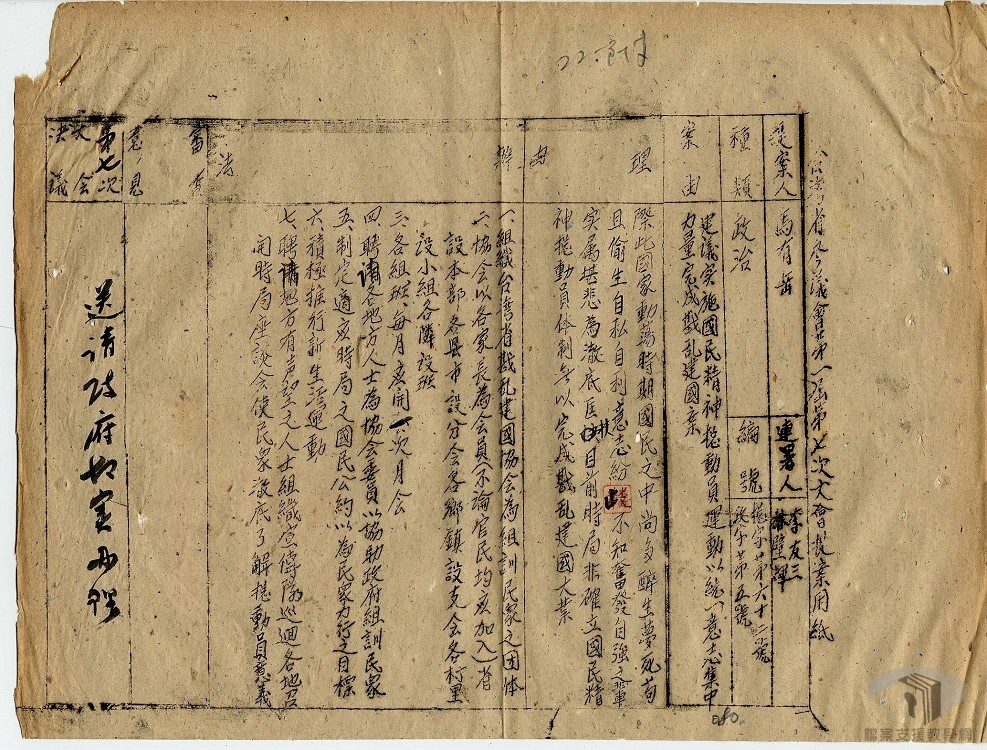 22.
台灣省參議會第一屆第七次大會提案用紙
提案人 馬有岳 連署人 李友三
種類 政治 編號 總字第六十二號
政字第五號
案由 建議實施國民精神總動員運動以統一意志集中
力量完成戡乱建國案
理由 際此國家動蕩時期國民之中尚多醉生夢死苟
且偷生自私自利意志紛歧不知奮發自強之輩
实属堪悲為澈底匡扶目前時局非確立國民精
神總動員体制無以完成戡乱建國大業
辦法 一、組織台灣省戡乱建國協会為組訓民众之団体
二、協会以各家長為会員(不論官民均应加入)省
設本部各县市設分会各鄉鎮設支会各村里
設小組各隣設班
三、各組班每月应開一次月会
四、聘请各地方人士為協会委員以協助政府組訓民众
五、制定適应時局之國民公約以為民众力行之目標
六、積極推行新生活運動
七、聘请地方有声望之人士組織宣傳隊巡迴各地召
開時局座談会使民众澈底了解總動員意義
審查意見
第七次大會決議 送请政府切实办理
080.
檔案支援教學網